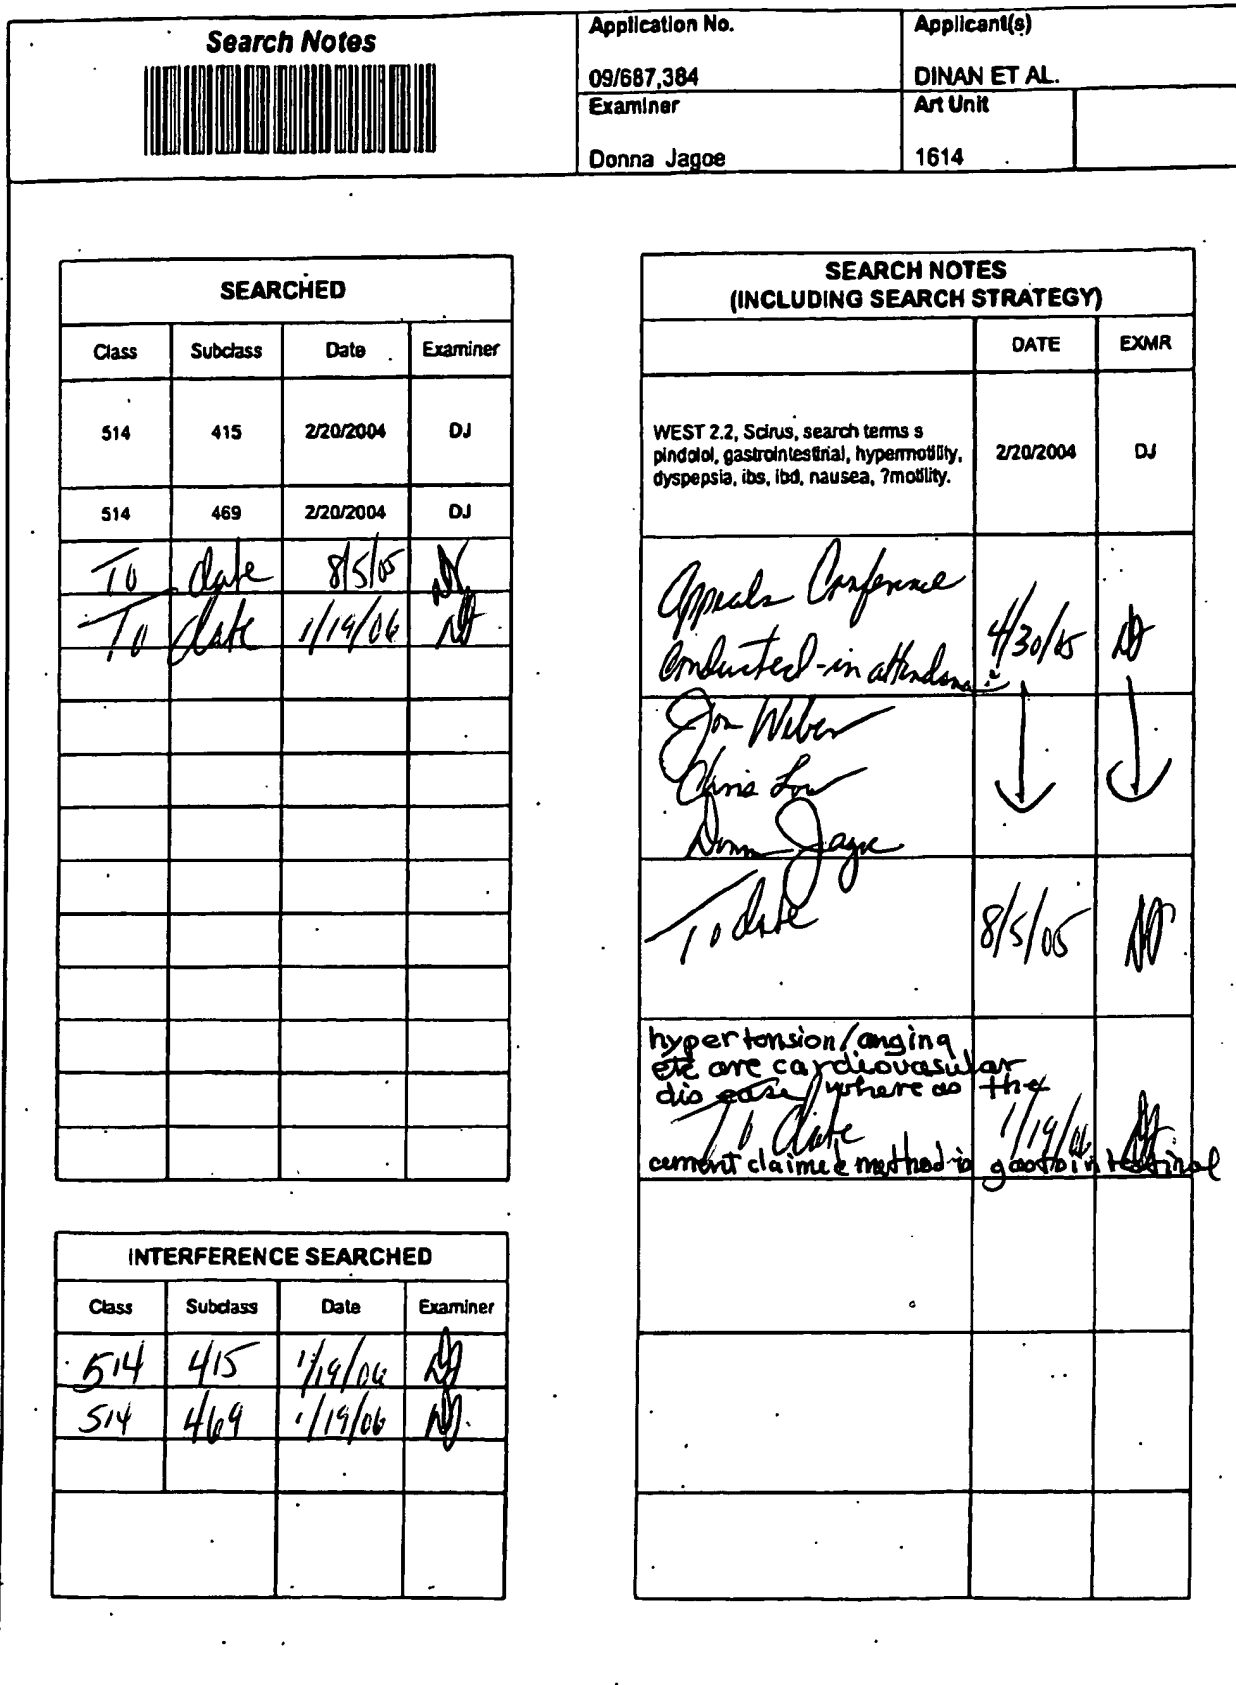 Search Notes
Application No.
09/687,384
Applicant(s)
DINAN ET AL.
Examiner
Donna Jagoe
Art Unit
1614
SEARCHED
Class Subclass Date Examiner
514 415 2/20/2004 DJ
514 469 2/20/2004 DJ
To date 8/5/05 DJ
To date 1/19/06 DJ
INTERFERENCE SEARCHED
Class Subclass Date Examiner
514 415 1/19/06 DJ
514 469 1/19/06 DJ
SEARCH NOTES
(INCLUDING SEARCH STRATEGY)
DATE EXMR
WEST 2.2, Scirus, search terms s
pindolol, gastrointestinal, hypermotility,
dyspepsia, ibs, ibd, nausea, ?motility.
2/20/2004 DJ
Appeals Conference
Conducted-in attendance:
4/30/05 DJ
Jon Weber
Chris Low
Donna Jagoe
To date 8/5/05 DJ
hypertension/angina
etc are cardiovasular
disease, where as the
To date 1/19/06 DJ
current claimed method is gastointestinal